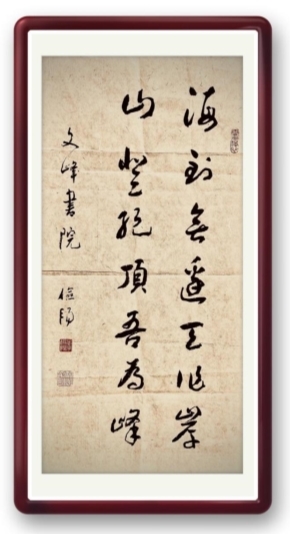 海到無邊天作岸
山登絕頂吾為峰
文峰書院